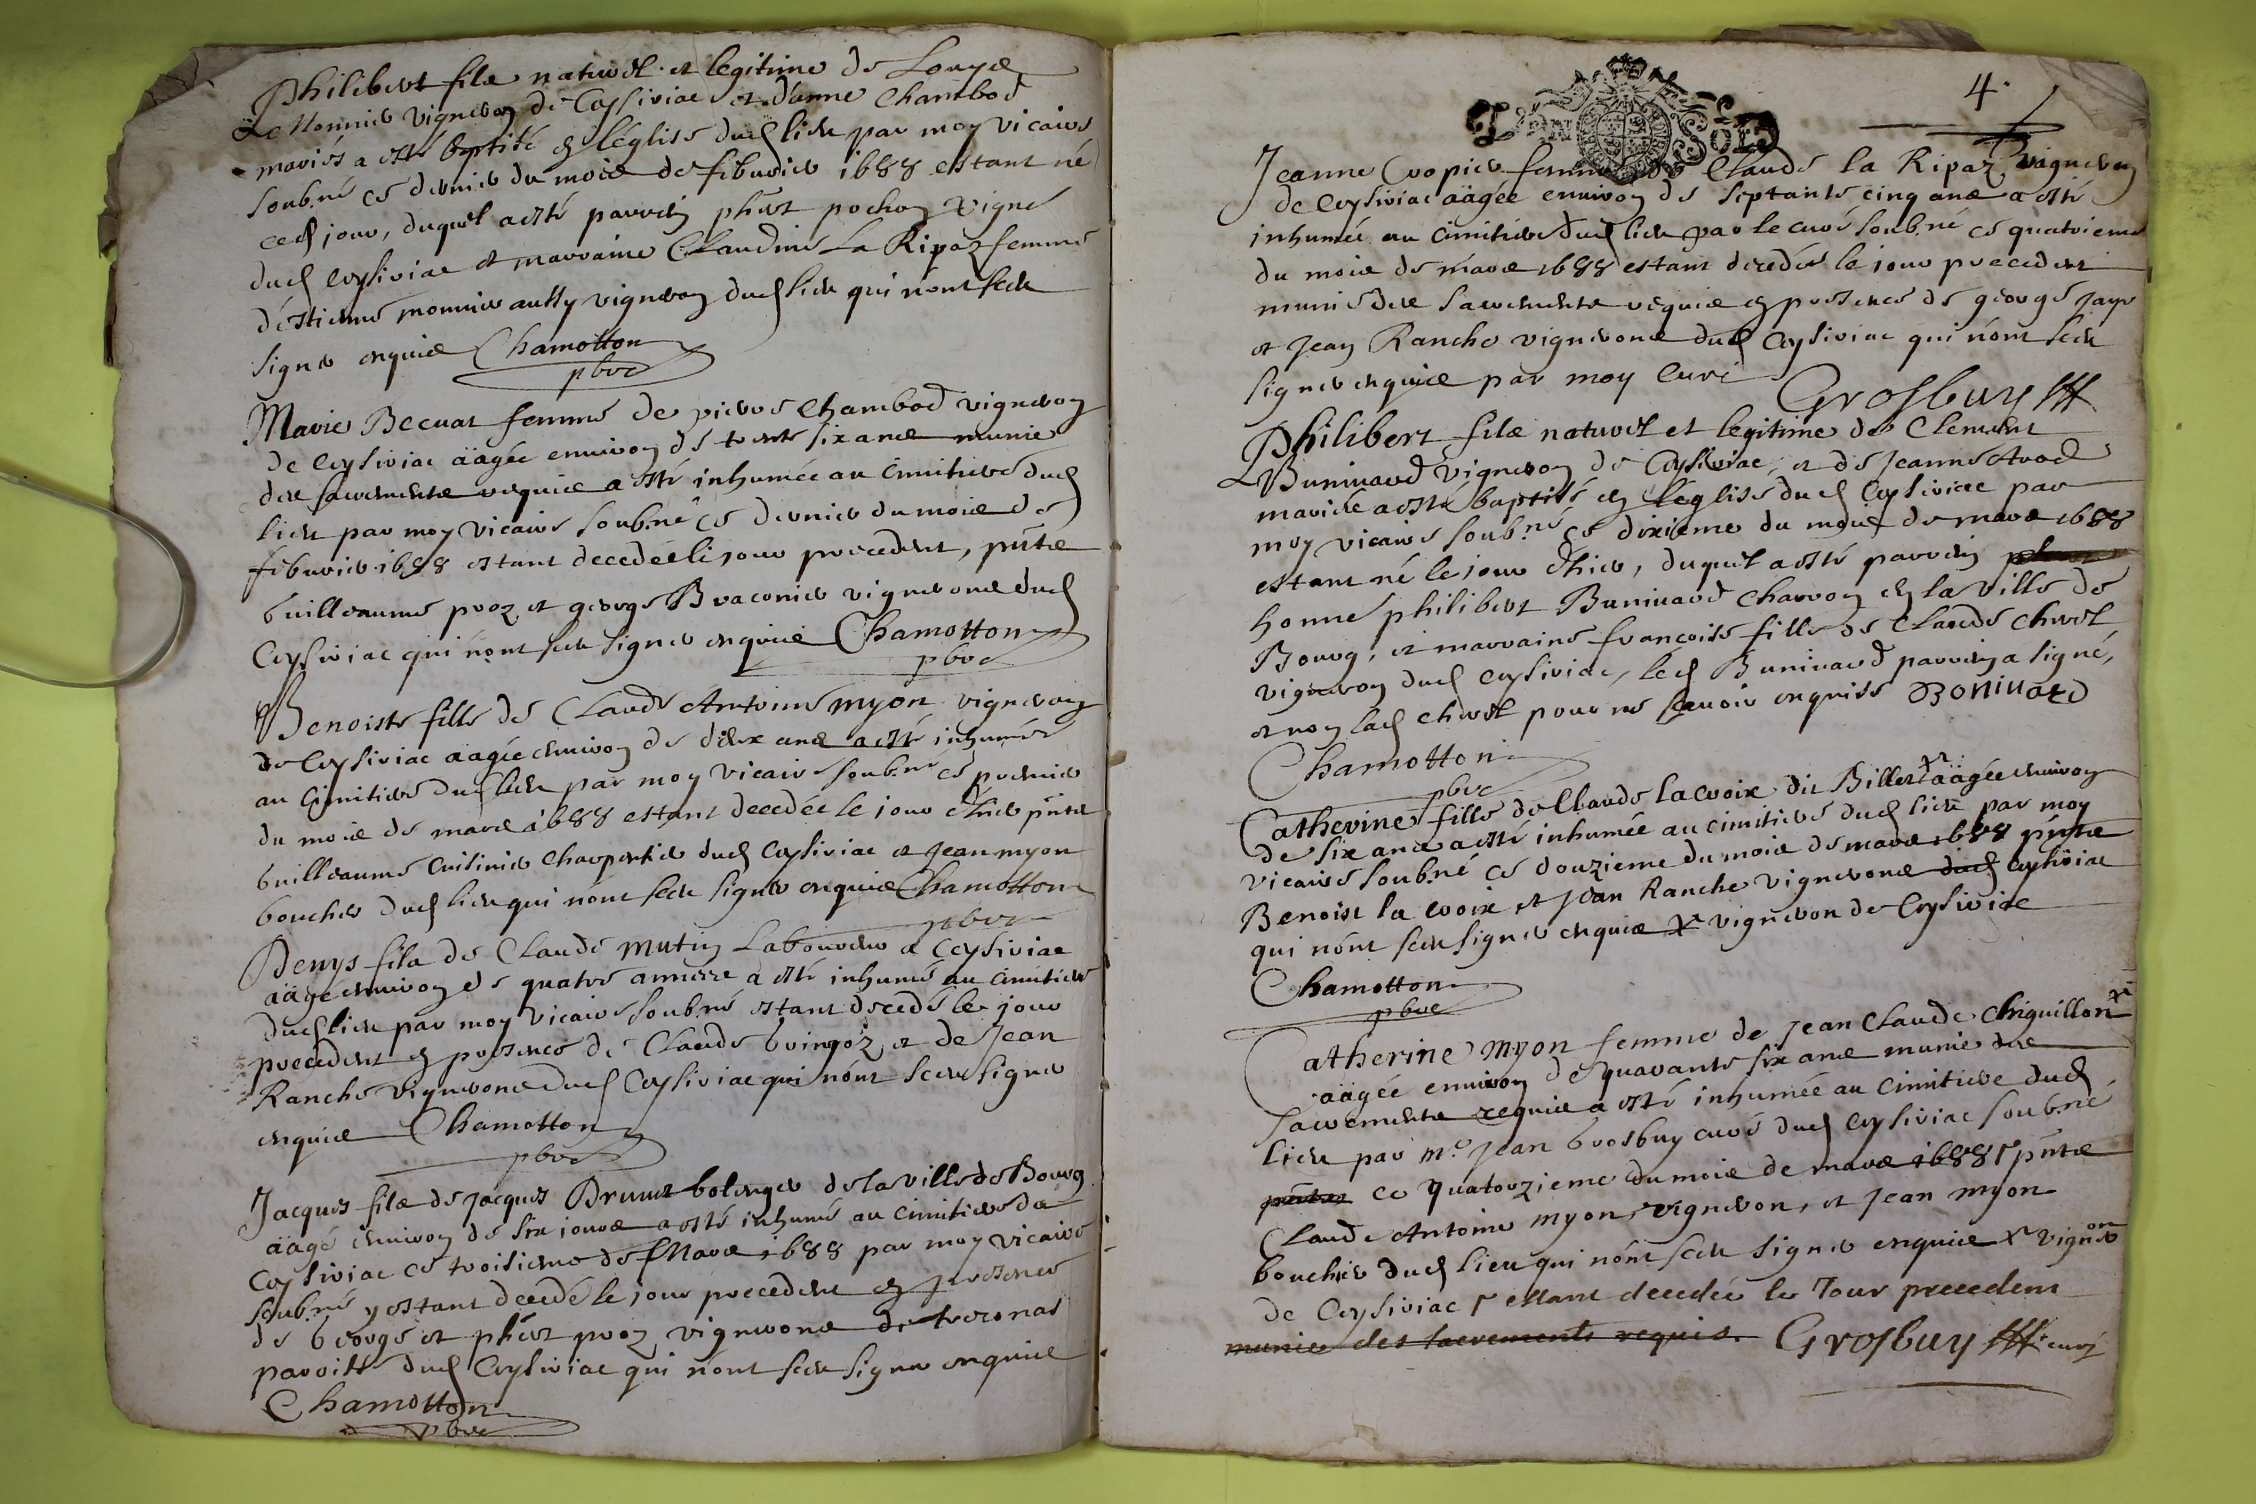 Philibert fils naturel et legitime de Louys
Monnier vigneron de Ceysiriac et d'anne Chambod
mariés a esté baptisé en l'église dud lieu par moy vicaire
soubné ce dernier du moys de febvrier 1688 estant né
ced jour, duquel a esté parrein phert pochon vigne
dud Ceysiriac et marraine Claudine La Ripaz femme
d'estienne monnier aussy vigneron dud lieu qui n'ont sceu
signer enquis Chamotton
pbre
Marie Becuat femme de pierre Chambod vigneron
de Ceysiriac äagée environ de trente six ans munie
des sacrements requis a esté inhumée au cimitiere dud
lieu par moy vicaire soubné ce dernier du mois de
febvrier 1688 estant decedée le jour precedent, pnts
Guilleaume proz et george Braconier vignerons dud
Ceysiriac qui n'ont sceu signer enquis Chamotton
pbre
Benoiste fille de Claude Antoine myon vigneron
de Ceysiriac äagée environ de deux ans a esté inhumée
au cimitiere dud lieu par moy vicaire soubné ce premier
du mois de mars 1688 estant decedée le jour d'hier pnts
Guilleaume Cuisinier charpentier dud Ceysiriac et Jean myon
boucher dud lieu qui n'ont sceu signer enquis Chamotton
pbre
Denys fils de Claude mutin Laboureur a Ceysiriac
äagé environ de quatre annees a esté inhumé au cimitiere
dud lieu par moy vicaire soubné estant decedé le jour
precedent en presence de Claude Gringoz et de Jean
Ranche vignerons dud Ceysiriac qui n'ont sceu signer
enquis Chamotton
pbre
Jacques fils de Jacques Brunet bolenger de la ville de Bourg
äagé environ de six jours a esté inhumé au cimitiere du
Ceysiriac ce troisieme de Mars 1688 par moy vicaire
soubné y estant decedé le jour precedent en presence
de George et phert proz vignerons de treconas
paroisse dud Ceysiriac qui n'ont sceu signer enquis
Chamotton
pbre
4.
Jeanne Cropier femme de Claude la Ripaz vigneron
de Ceysiriac äagée environ de septante cinq ans a esté
inhumée au cimitiere dud lieu par le curé soubné ce quatrieme
du mois de mars 1688 estant decedée le jour precedent
munie des sacrements requis en presence de george Jayr
et Jean Ranche vignerons dud Ceysiriac qui n'ont sceu
signer enquis par moy curé
Grosbuy
Philibert fils naturel et legitime de Clement
Bunivard vigneron de Ceysiriac, et de Jeanne Arod
mariés a esté baptisé en l'église dud Ceysiriac par
moy vicaire soubné ce dixieme du mois de mars 1688
estant né le jour d'hier, duquel a esté parrein
honné philibert Bunivard charron en la ville de
Bourg, et marraine francoise fille de Claude Chrel
vigneron dud Ceysiriac, led Bunivard parrein a signé,
et non lad Chrel pour ne scavoir enquise Bonivard
Chamotton
pbre
Catherine fille de Claude Lacroix dit Billet äagée environ
de six ans a esté inhumée au cimitiere dud lieu par moy
vicaire soubné ce douzieme du mois de mars 1688 pnts
Benoist la croix et Jean Ranche vignerons dud Ceysiriac
qui n'ont sceu signer enquis x vigneron de Ceysiriac
Chamotton
pbre
Catherine myon femme de Jean Claude Chiguillon x
äagée environ de quarante six ans munie des
sacrements requis a esté inhumée au cimitiere dud
lieu par Mre Jean Grosbuy curé dud Ceysiriac soubné
ce quatorzieme du mois de mars 1688 pnts
Claude Antoine myon, vigneron, et Jean myon
boucher dud lieu qui n'ont sceu signer enquis x vigneron
de Ceysiriac estant decedée le Jour precedent
munie des sacrements requis. Grosbuy curé